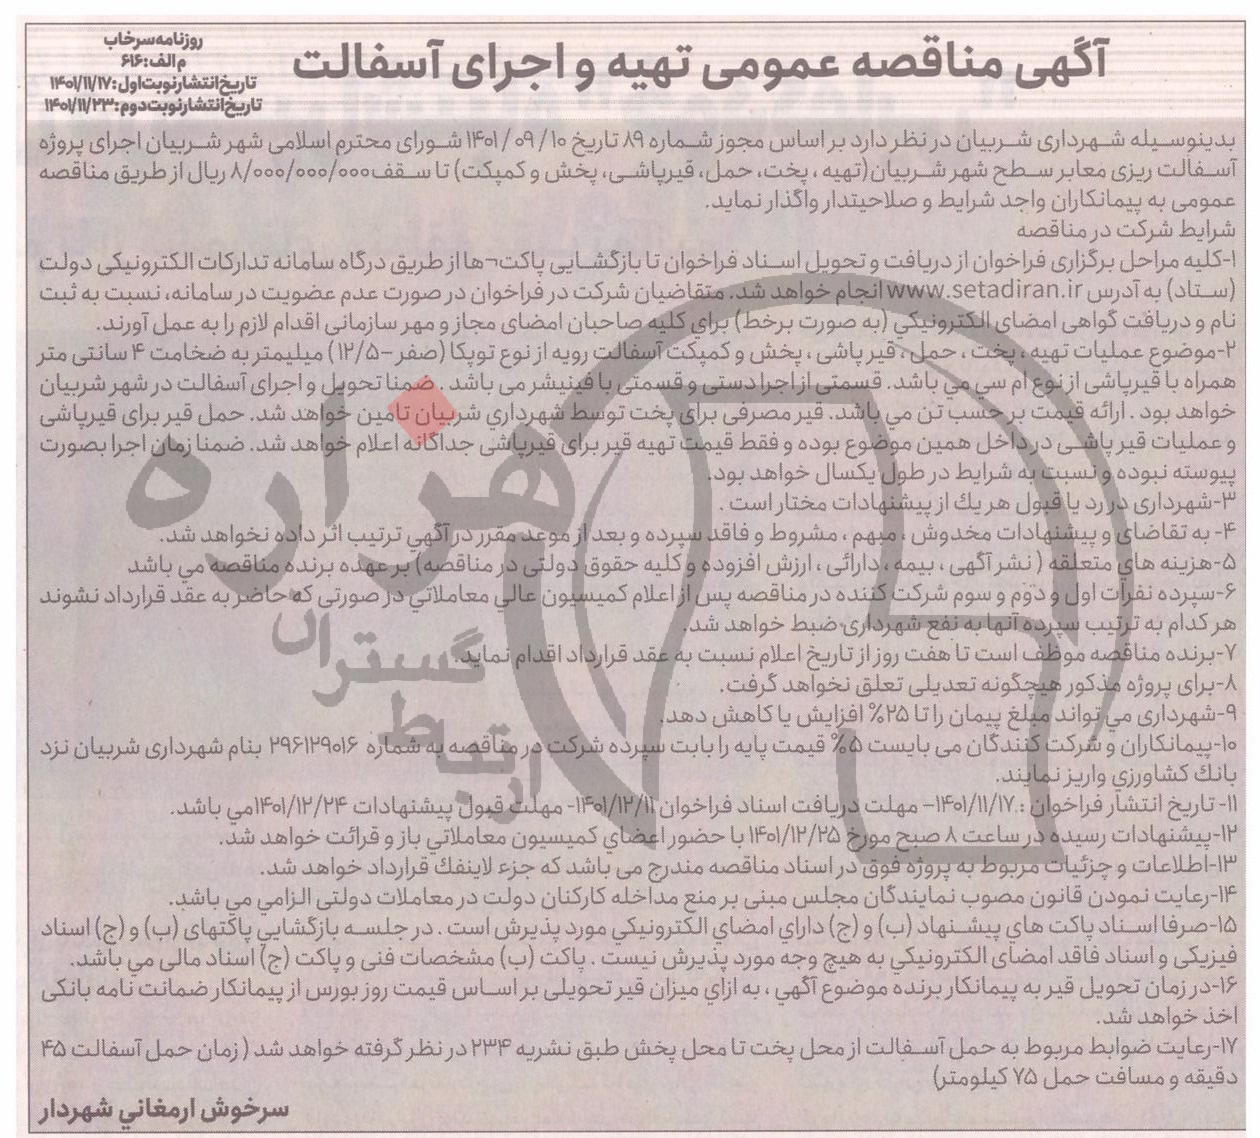 روزنامه سرخاب
م الف: ۶۱۶
تاریخ انتشار نوبت اول: ۱۴۰۱/۱۱/۱۷
تاریخ انتشار نوبت دوم: ۱۴۰۱/۱۱/۲۳
آگهی مناقصه عمومی تهیه و اجرای آسفالت
بدینوسیله شهرداری شربیان در نظر دارد بر اساس مجوز شماره ۸۹ تاریخ ۱۰/ ۰۹/ ۱۴۰۱ شورای محترم اسلامی شهر شربیان اجرای پروژه
آسفالت ریزی معابر سطح شهر شربیان(تهیه ، پخت، حمل، قیرپاشی، پخش و کمپکت) تا سقف۸/۰۰۰/۰۰۰/۰۰۰ ریال از طریق مناقصه
عمومی به پیمانکاران واجد شرایط و صلاحیتدار واگذار نماید.
شرایط شرکت در مناقصه
۱-کلیه مراحل برگزاری فراخوان از دریافت و تحویل اسناد فراخوان تا بازگشایی پاکت¬ها از طریق درگاه سامانه تدارکات الکترونیکی دولت
(ستاد) به آدرس www.setadiran.ir انجام خواهد شد. متقاضیان شرکت در فراخوان در صورت عدم عضویت در سامانه، نسبت به ثبت
نام و دریافت گواهی امضای الکترونیکي (به صورت برخط) براي کلیه صاحبان امضای مجاز و مهر سازمانی اقدام لازم را به عمل آورند.
۲-موضوع عملیات تهیه ، پخت ، حمل ، قیر پاشی ، پخش و کمپکت آسفالت رویه از نوع توپکا (صفر -۱۲/۵) میلیمتر به ضخامت ۴ سانتی متر
همراه با قیرپاشی از نوع ام سی مي باشد. قسمتی از اجرا دستی و قسمتی با فینیشر می باشد . ضمنا تحویل و اجرای آسفالت در شهر شربیان
خواهد بود . ارائه قیمت بر حسب تن مي باشد. قیر مصرفی برای پخت توسط شهرداري شربیان تامین خواهد شد. حمل قیر برای قیرپاشی
و عملیات قیر پاشی در داخل همین موضوع بوده و فقط قیمت تهیه قیر برای قیرپاشی جداگانه اعلام خواهد شد. ضمنا زمان اجرا بصورت
پیوسته نبوده و نسبت به شرایط در طول یکسال خواهد بود.
۳-شهرداری در رد یا قبول هر یك از پیشنهادات مختار است .
۴- به تقاضای و پیشنهادات مخدوش ، مبهم ، مشروط و فاقد سپرده و بعد از موعد مقرر در آگهي ترتیب اثر داده نخواهد شد.
۵-هزینه هاي متعلقه ( نشر آگهی ، بیمه ، دارائی ، ارزش افزوده و کلیه حقوق دولتی در مناقصه) بر عهده برنده مناقصه مي باشد
۶-سپرده نفرات اول و دوم و سوم شرکت کننده در مناقصه پس از اعلام کمیسیون عالي معاملاتي در صورتی که حاضر به عقد قرارداد نشوند
هر کدام به ترتیب سپرده آنها به نفع شهرداری ضبط خواهد شد.
۷-برنده مناقصه موظف است تا هفت روز از تاریخ اعلام نسبت به عقد قرارداد اقدام نماید.
۸-برای پروژه مذکور هیچگونه تعدیلی تعلق نخواهد گرفت.
۹-شهرداری مي تواند مبلغ پیمان را تا ۲۵% افزایش یا کاهش دهد.
۱۰-پیمانکاران و شرکت کنندگان می بایست ۵% قیمت پایه را بابت سپرده شرکت در مناقصه به شماره ۲۹۶۱۲۹۰۱۶ بنام شهرداری شربیان نزد
بانك کشاورزي واریز نمایند.
۱۱- تاریخ انتشار فراخوان : ۱۴۰۱/۱۱/۱۷– مهلت دریافت اسناد فراخوان ۱۴۰۱/۱۲/۱۱- مهلت قبول پیشنهادات ۱۴۰۱/۱۲/۲۴مي باشد.
۱۲-پیشنهادات رسیده در ساعت ۸ صبح مورخ ۱۴۰۱/۱۲/۲۵ با حضور اعضاي کمیسیون معاملاتي باز و قرائت خواهد شد.
۱۳-اطلاعات و جزئیات مربوط به پروژه فوق در اسناد مناقصه مندرج می باشد که جزء لاینفك قرارداد خواهد شد.
۱۴-رعایت نمودن قانون مصوب نمایندگان مجلس مبنی بر منع مداخله کارکنان دولت در معاملات دولتی الزامي مي باشد.
۱۵-صرفا اسناد پاکت هاي پیشنهاد (ب) و (ج) داراي امضای الکترونیکي مورد پذیرش است . در جلسه بازگشایي پاکتهای (ب) و (ج) اسناد
فیزیکی و اسناد فاقد امضای الکترونیکي به هیچ وجه مورد پذیرش نیست . پاکت (ب) مشخصات فنی و پاکت (ج) اسناد مالی مي باشد.
۱۶-در زمان تحویل قیر به پیمانکار برنده موضوع آگهي ، به ازاي میزان قیر تحویلی بر اساس قیمت روز بورس از پیمانکار ضمانت نامه بانکی
اخذ خواهد شد.
۱۷-رعایت ضوابط مربوط به حمل آسفالت از محل پخت تا محل پخش طبق نشریه ۲۳۴ در نظر گرفته خواهد شد ( زمان حمل آسفالت ۴۵
دقیقه و مسافت حمل ۷۵ کیلومتر)
سرخوش ارمغاني شهردار
هزاره
ارتباط گستران